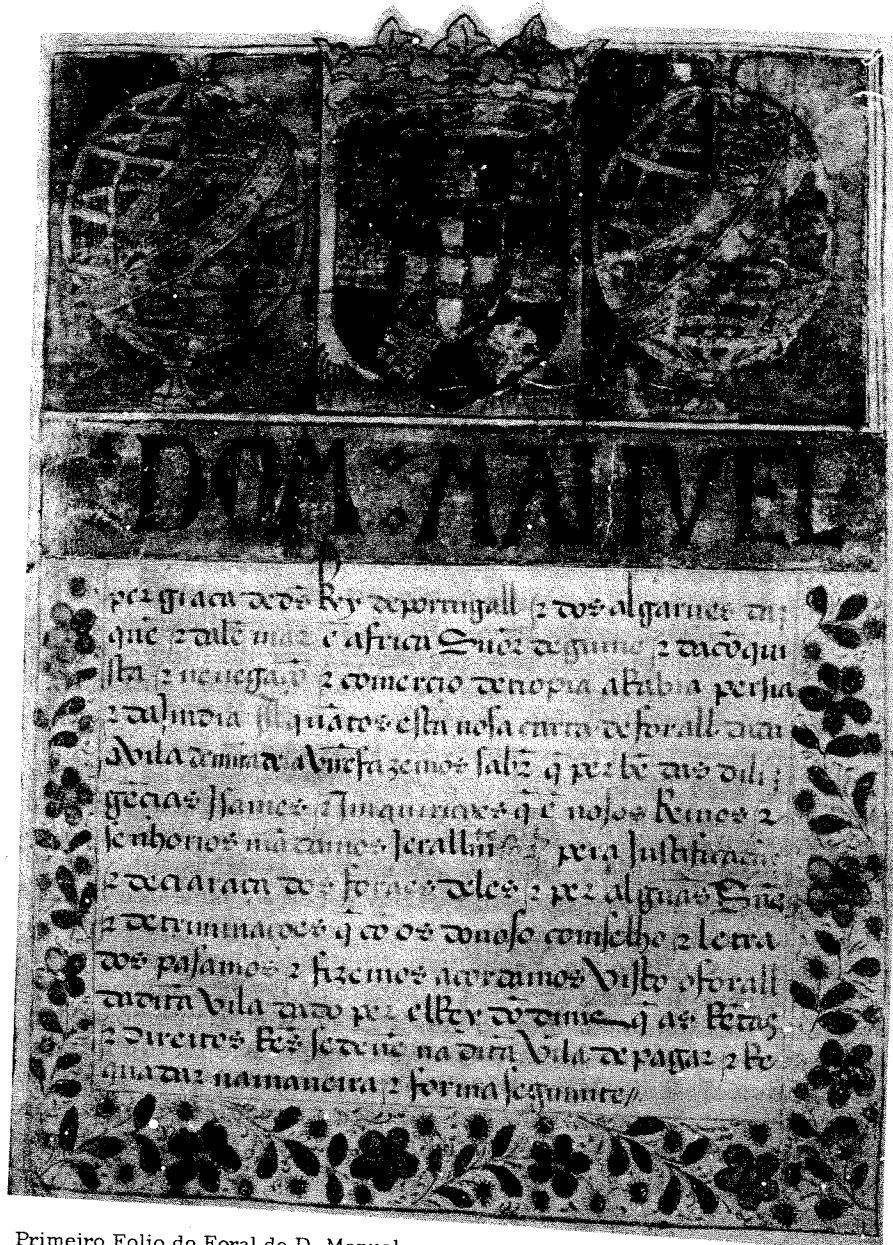 DOM : MANVEL
per graca de ds Rey de portugall ⁊ dos algarues da
quē ⁊ dalē mar ē africa Sñor de guine ⁊ da cōqui
sta ⁊ nauegaçō ⁊ comercio detiopia arabia persia
⁊ da India quātos esta nosa carta de forall dada
A vila de miranda fazemos sabr q̄ per bē das dili
gēcias Isames ⁊ Inquiricoes q̄ ē nosos Reinos ⁊
senhorios mādamos Jerallmte pera Justificacā
⁊ declaraçā dos foraes deles ⁊ per alguās
⁊ detriminacoes q̄ cō os do noso comselho ⁊ letra
dos pasamos ⁊ fizemos acordamos Visto o forall
da dita Vila dado per elRey dō dinis q̄ as Rētas
⁊ direitos Res se deuē na dita Vila de pagar ⁊ Re
quadar na maneira ⁊ forma seguinte//
Primeiro Folio do Foral de D. Manuel